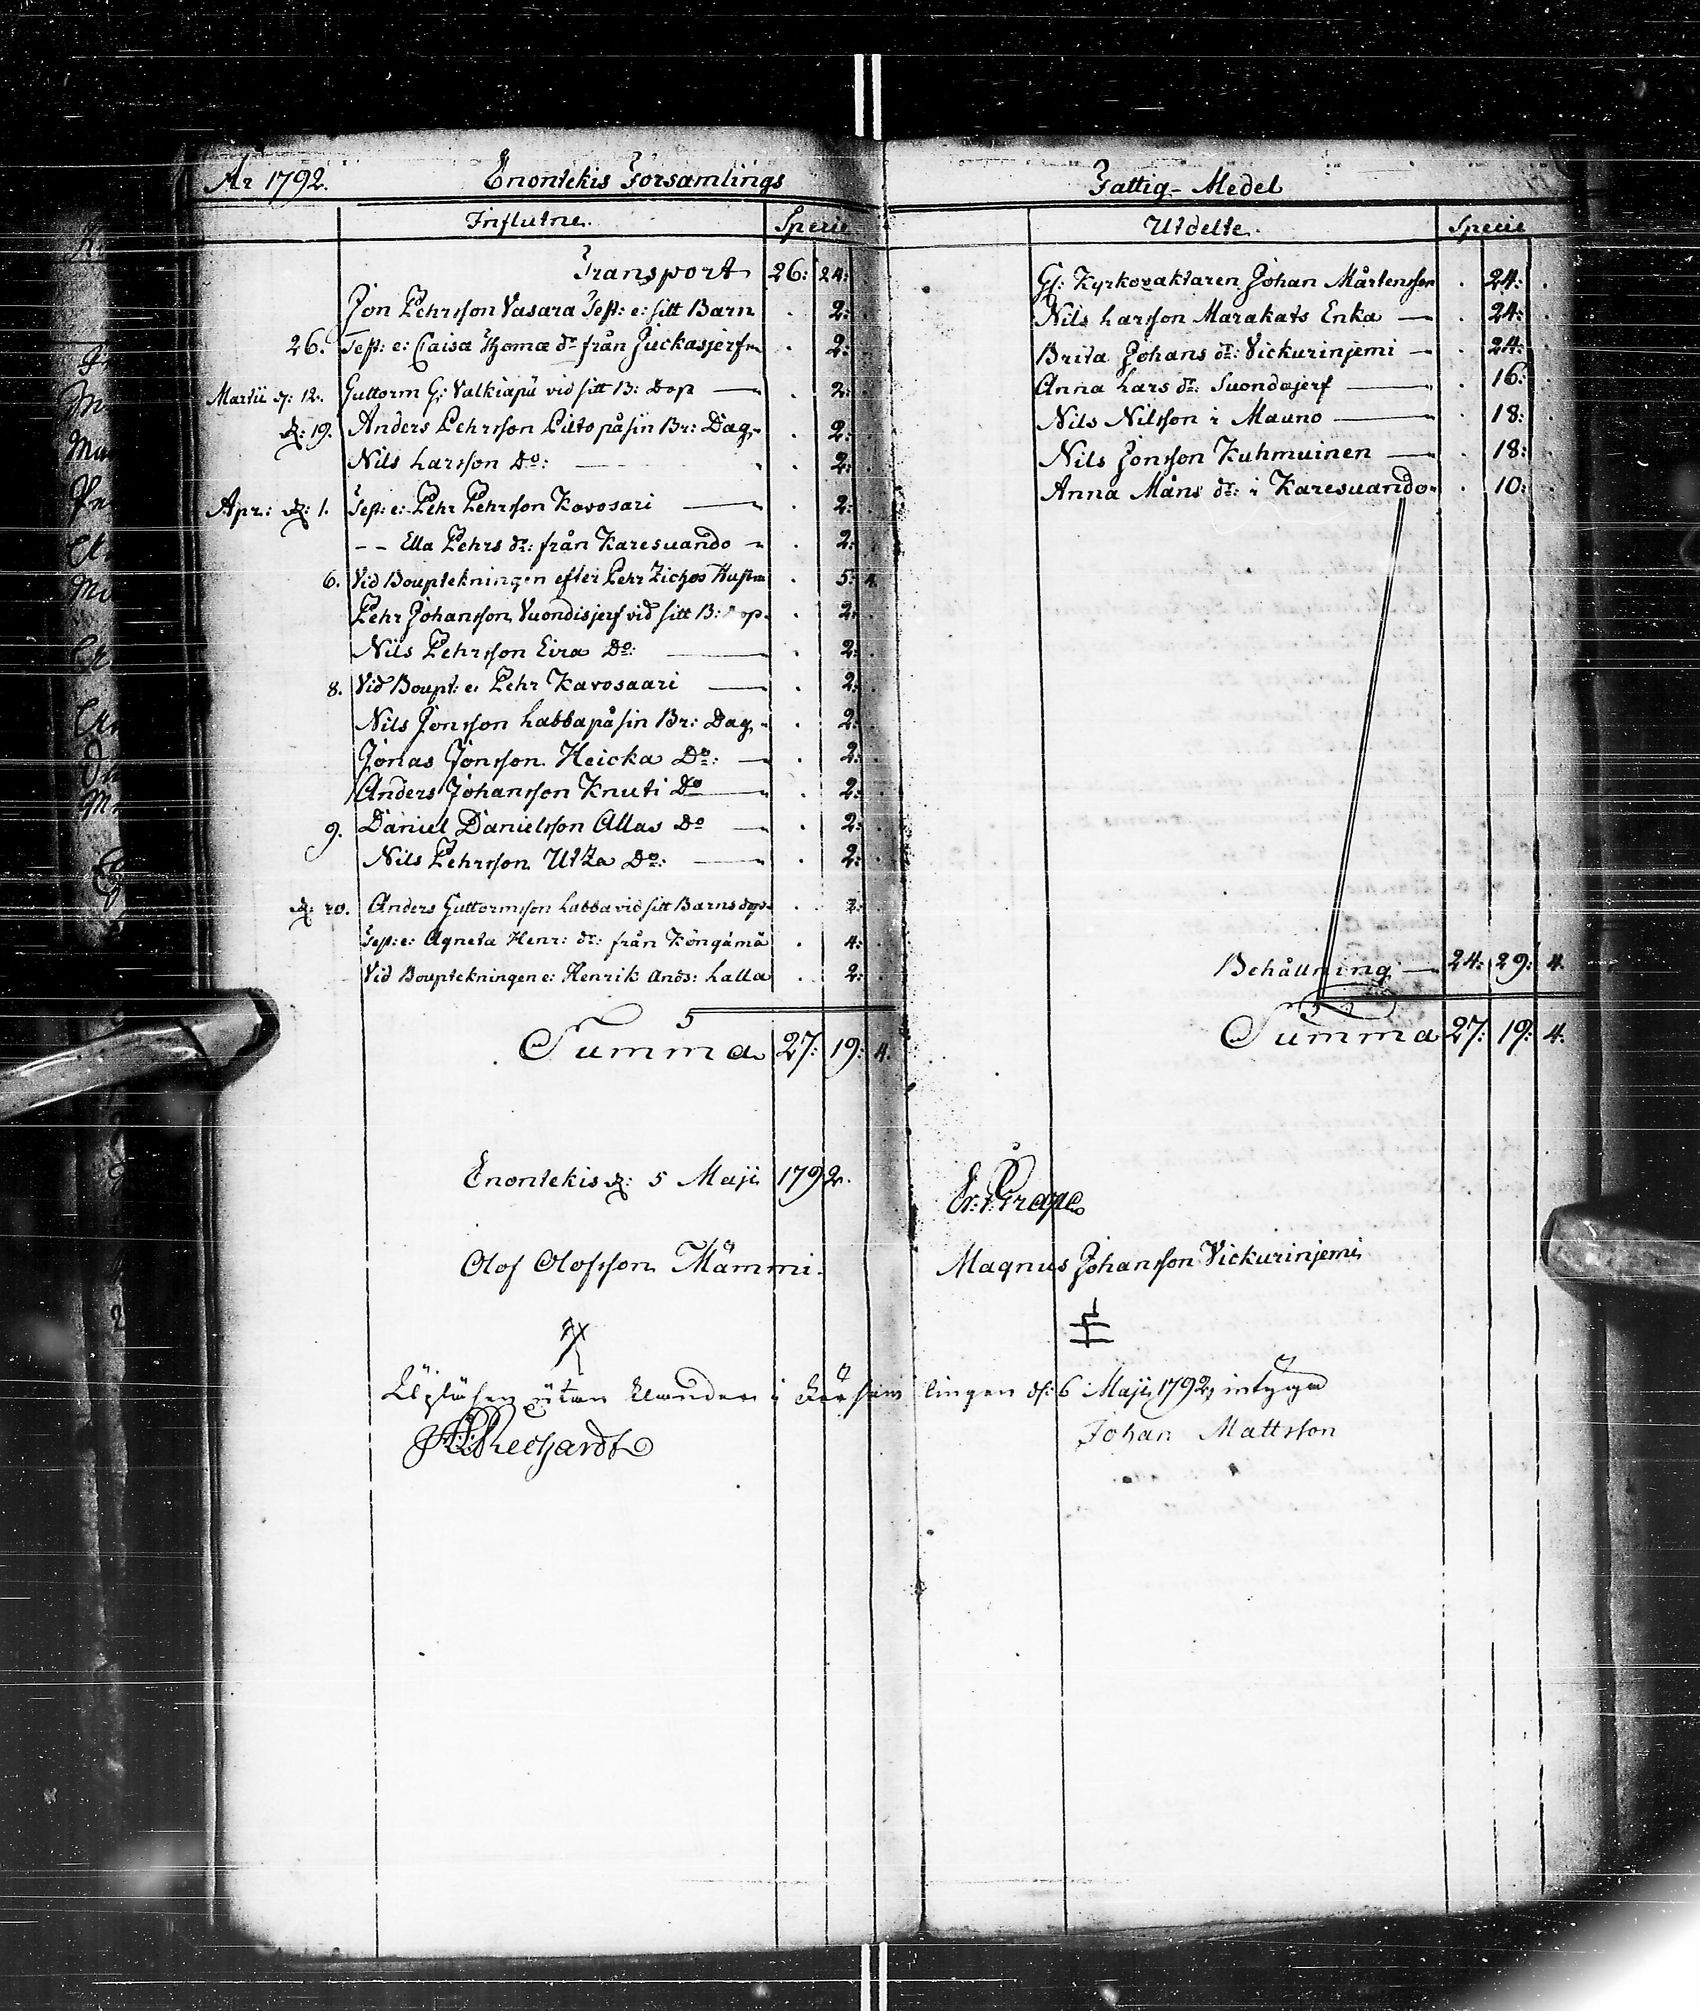 År 1792. Enontekis Församlings
Influtne. Specie
Transport 26: 24:
Jon Pehrsson Vasara Test: e: sitt Barn . 2:
26. Test: e: Caisa Thomæ dr från Juckasjerfw . 2:
Martii d: 12. Guttorm G: Valkiapä vid sitt B: Dop — . 2:
d: 19. Anders Pehrsson Pilto på sin Br: Dag . 2:
Nils Larsson Do: — . 2:
Apr: d: 1. Test: e: Pehr Pehrsson Kavosari — . 2:
- - Ella Pehrs dr: från Karesuando . 2:
6. Vid Bouptekningen efter Pehr Hustru . 5: 4.
Pehr Johansson Vuondisjerf vid sitt B: Dop . 2:
Nils Pehrsson Eira Do: — . 2:
8. Vid Boupt: e: Pehr Kavosaari — . 2:
Nils Jonsson Labba på sin Br: Dag . 2:
Jonas Jonsson Heicka Do: — . 2:
Anders Johansson Knuti Do — . 2:
9. Daniel Danielsson Allas Do — . 2:
Nils Pehrsson Utza Do: — . 2:
d: 20. Anders Guttormsson Labba vid sitt Barns dop . 2:
Test: e: Agneta Henr: dr: från Köngämä . 4:
Vid Bouptekningen e: Henrik Ands: Lalla . 2:
Summa 27: 19: 4.
Enontekis d: 5 Maji 1792.
Olof Olofsson Mämmi.
Fattig-Medel
Utdelte. Specie
Gl: Kyrkovaktaren Johan Mårtensson . 24:
Nils Larsson Marakats Enka — . 24:
Brita Johans dr: Vickurinjemi — . 24:
Anna Lars dr: Suondajerf — . 16:
Nils Nilsson i Mauno — . 18:
Nils Jonsson Kuhmuinen — . 18:
Anna Måns dr: i Karesuando . 10:
Behållning — 24: 29: 4.
Summa 27: 19: 4.
Er: J: Grape
Magnus Johansson Vickurinjemi
Upläsen utan klander i Församlingen d: 6 Maji 1792, intyga
Rechardt
Johan Mattsson